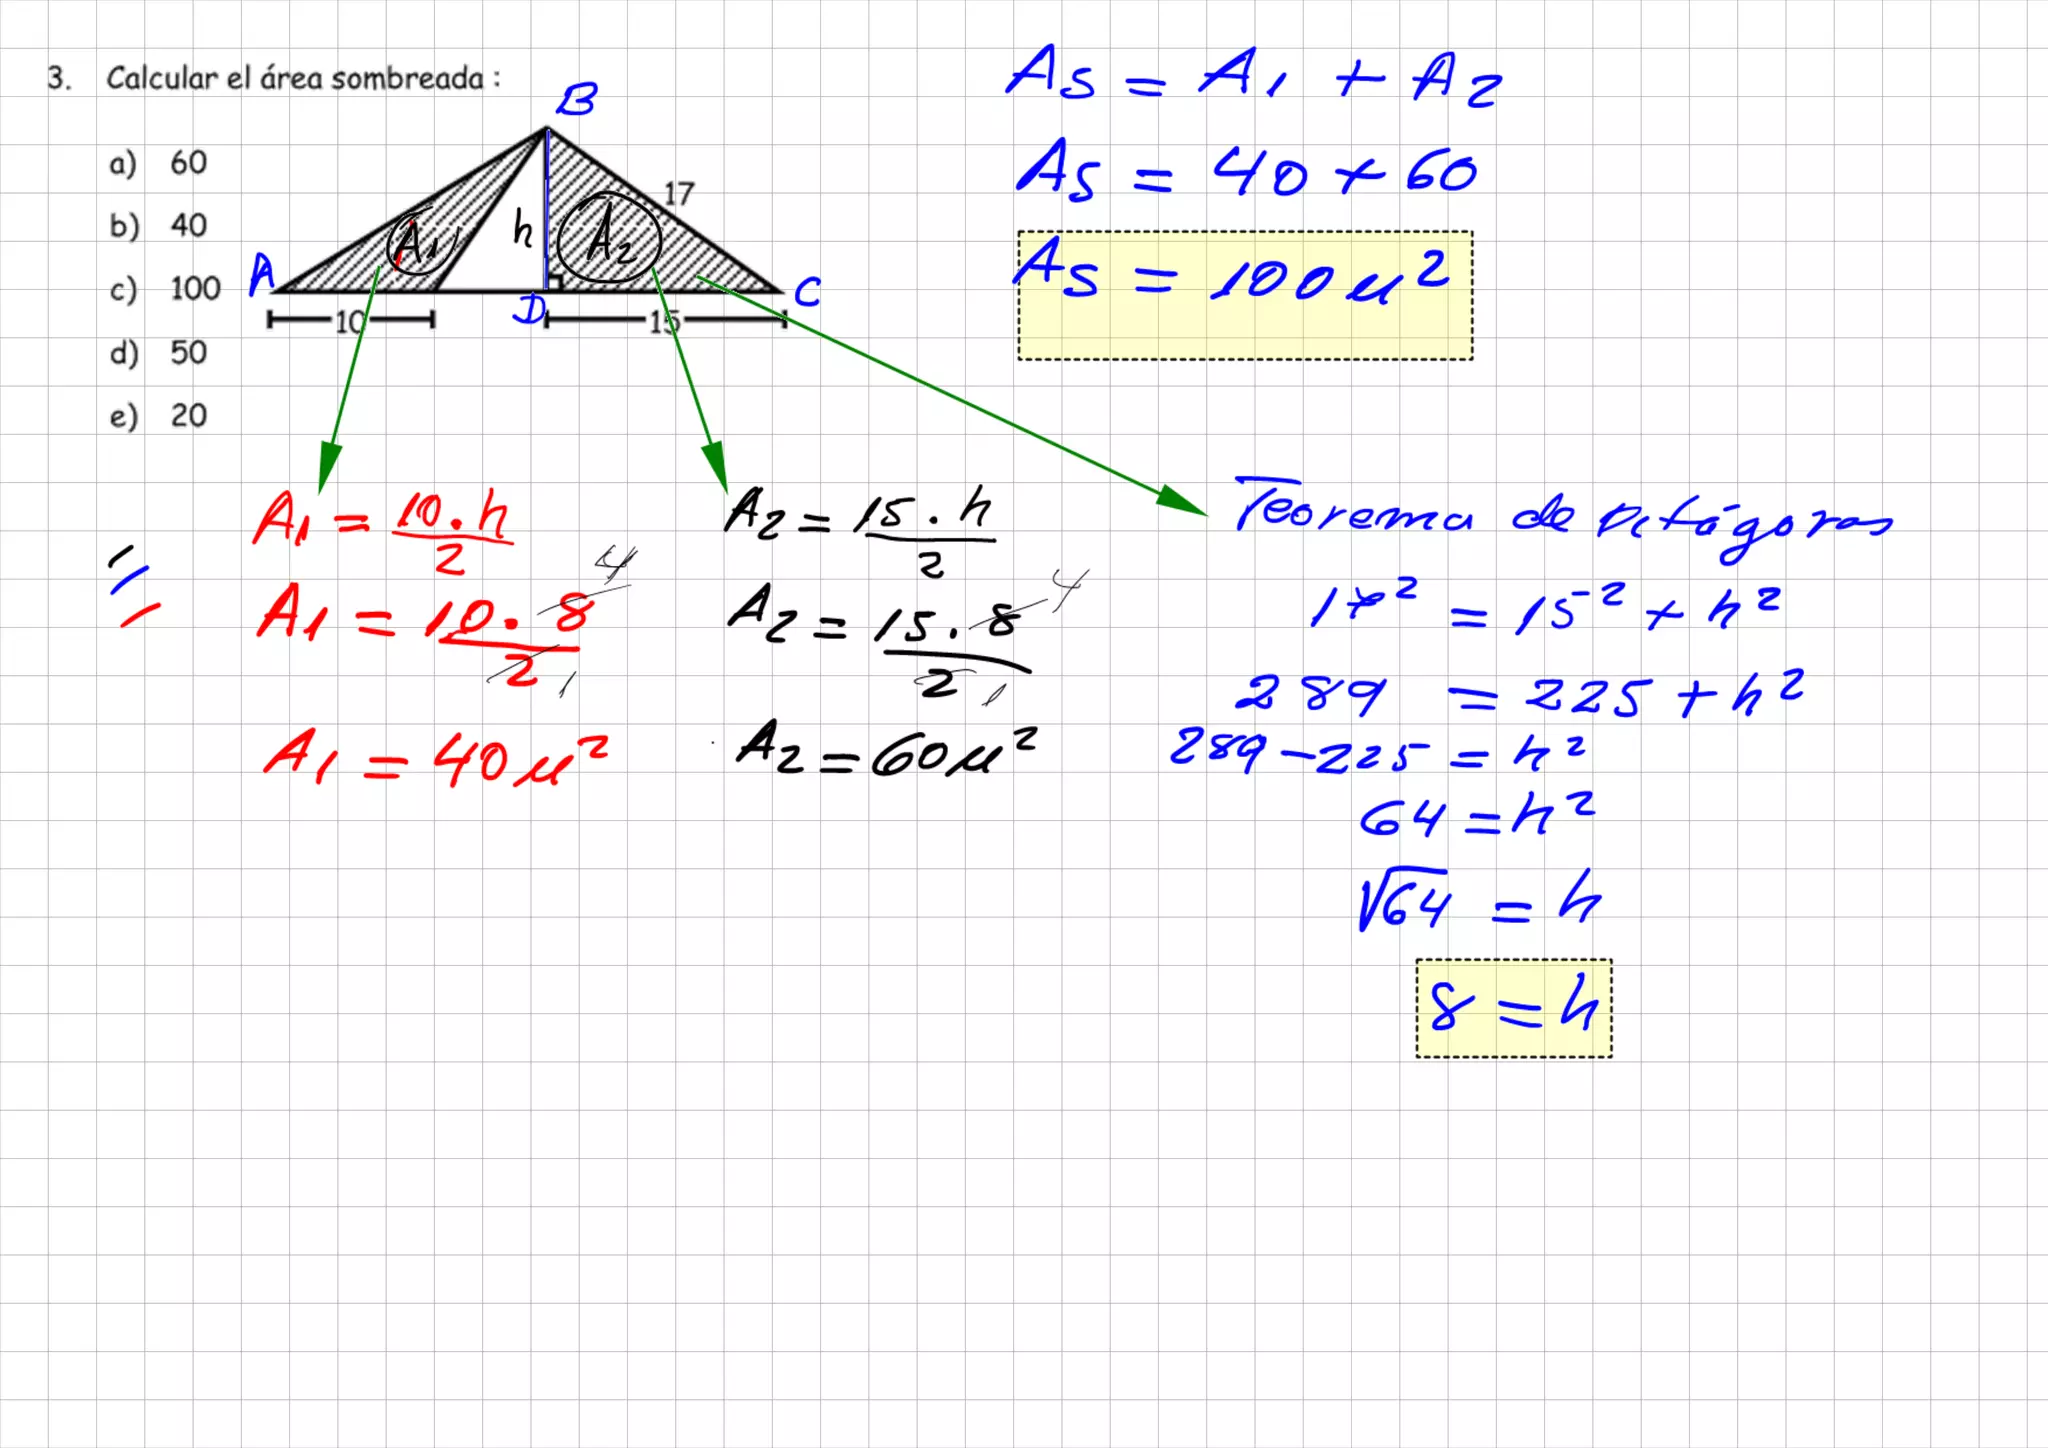 3. Calcular el área sombreada :
a) 60
b) 40
c) 100
d) 50
e) 20
B
17
h
A1
A2
A
D
C
10
15
As = A1 + A2
As = 40 + 60
As = 100 u²
A1 = 10 . h / 2
A1 = 10 . 8 / 2
4
1
A1 = 40 u²
A2 = 15 . h / 2
A2 = 15 . 8 / 2
4
1
A2 = 60 u²
Teorema de Pitágoras
17² = 15² + h²
289 = 225 + h²
289 - 225 = h²
64 = h²
√64 = h
8 = h